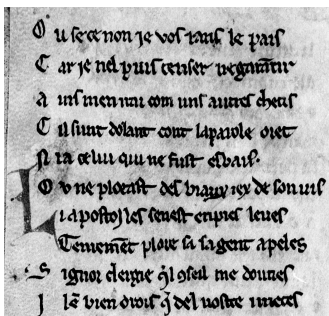 O u se ce non ie vos rant le pais
C ar ie nel puis tenser
A ins men irai com uns autres chetis
C il furt dolant cont la parole oret
N i a celui qui ne fust esbais.
O u ne plorast des biaux iex de son vis
L i apostoiles senest en pies leues
Tenrement plore si sa gent apeles
S ignor clergie q̄l 9seil me donres
I lē bien drois q̄ del nostre i metes